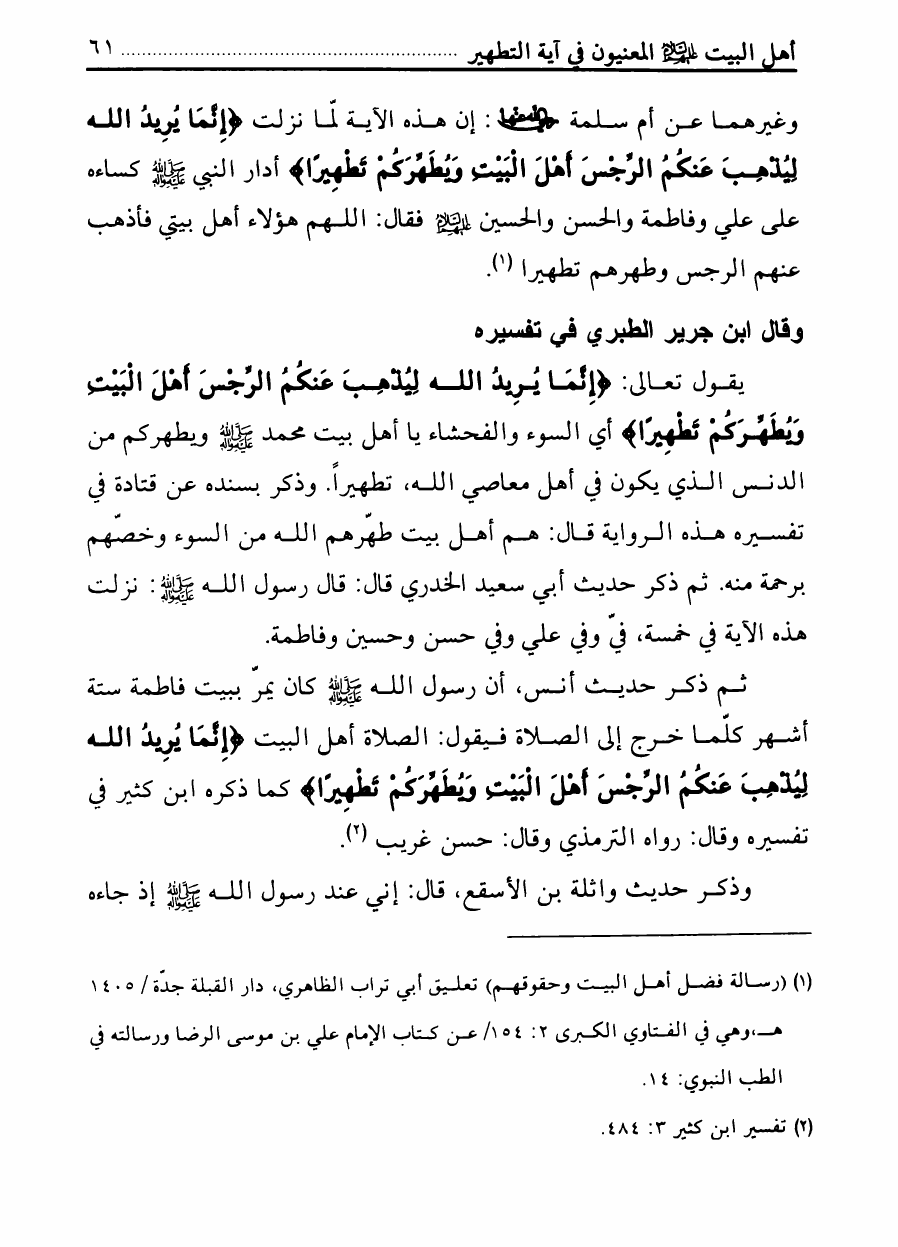 أهل البيت عليهم السلام المعنيون في آية التطهير ........................................................ ٦١
وغيرهمـا عـن أم سـلمة : إن هـذه الآيـة لمّا نزلت ﴿إِنَّمَا يُرِيدُ الله
لِيُذْهِبَ عَنكُمُ الرِّجْسَ أَهْلَ الْبَيْتِ وَيُطَهِّرَكُمْ تَطْهِيرًا﴾ أدار النبي ﷺ كساءه
على علي وفاطمة والحسن والحسين عليهم السلام فقال: اللـهم هؤلاء أهل بيتي فأذهب
عنهم الرجس وطهرهم تطهيرا (١).
وقال ابن جرير الطبري في تفسيره
يقـول تعـالى: ﴿إِنَّمَا يُرِيدُ اللـه لِيُذْهِبَ عَنكُمُ الرِّجْسَ أَهْلَ الْبَيْتِ
وَيُطَهِّرَكُمْ تَطْهِيرًا﴾ أي السوء والفحشاء يا أهل بيت محمد ﷺ ويطهركم من
الدنـس الـذي يكون في أهل معاصي اللـه، تطهيراً. وذكر بسنده عن قتادة في
تفسـيره هـذه الـرواية قـال: هـم أهـل بيت طهّرهم اللـه من السوء وخصّهم
برحمة منه. ثم ذكر حديث أبي سعيد الخدري قال: قال رسول اللـه ﷺ: نزلت
هذه الآية في خمسة، فيّ وفي علي وفي حسن وحسين وفاطمة.
ثـم ذكـر حديـث أنـس، أن رسول اللـه ﷺ كان يمرّ ببيت فاطمة ستة
أشـهر كلّمـا خـرج إلى الصـلاة فـيقول: الصلاة أهل البيت ﴿إِنَّمَا يُرِيدُ الله
لِيُذْهِبَ عَنكُمُ الرِّجْسَ أَهْلَ الْبَيْتِ وَيُطَهِّرَكُمْ تَطْهِيرًا﴾ كما ذكره ابن كثير في
تفسيره وقال: رواه الترمذي وقال: حسن غريب (٢).
وذكـر حديث واثلة بن الأسقع، قال: إني عند رسول اللـه ﷺ إذ جاءه
(١) (رسـالة فضـل أهـل البيـت وحقوقهـم) تعلـيق أبي تراب الظاهري، دار القبلة جدّة/ ١٤٠٥
هـ،وهي في الفـتاوي الكـبرى ٢: ١٥٤/ عـن كـتاب الإمام علي بن موسى الرضا ورسالته في
الطب النبوي: ١٤.
(٢) تفسير ابن كثير ٣: ٤٨٤.